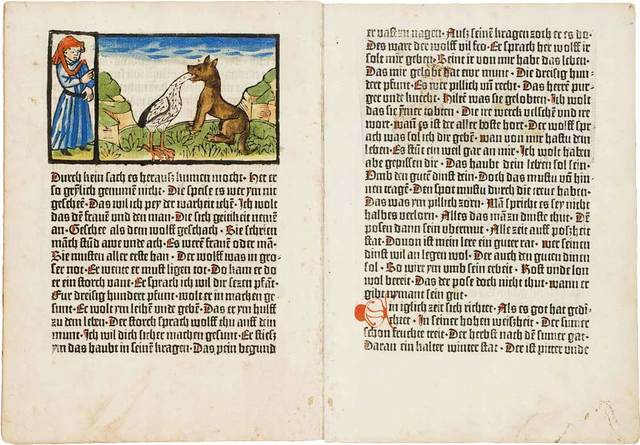 Durch kein sach es herausz kumen mocht· Het er
so greẏlich genumen nicht· Die speise es wer ẏm nit
geschee· Das wil ich peẏ der warheit ieh̄· Ich wolt
das dē fraūe vnd den man· Die sich geitikeit neūē
an· Geschee als dem wolff geschach· Sie schrien
māch stūd awe vnd ach· Es weeñ fraūe od᷑ mā·
Sie musten aller erste han· Der wolff was in gro-
ser not· Er wente er must ligen tot· Do kam er do
er ein storch vant· Er sprach ich wil dir seczē pfāt·
Fur dreisig hundert pfunt· wolst er in machen ge-
sunt· Er wolt ẏm leihē vnd gebē· Das er ẏm hulff
zu dem leben· Der storch sprach wolff thu auff din
munt· Ich wil dich sicher machen gesunt· Er stiesz
ẏm das haubt in seinē kragen· Das pein begund
er vast zu nagen· Ausz seinē kragen zoch er es do·
Des wart der wolff vil fro· Er sprach her wolff ir
solt mir geben· Seine ir von mir habt das leben·
Das mir gelobet hat ewr munt· Die dreisig hun-
dert pfunt· Es wer pillich vn̄ recht· Das herre pur-
ger vnd knecht· Hiltē was sie geloben· Ich wolt
das sie furte tobten· Die ire werck velschē vnd ire
wort· wān es ist der aller boste hort· Der wolff sp̄-
ach was sol ich dir gebē· wann du hast von mir dein
leben· Es stāt ein weil gar an mir· Ich wolt haben
abe gepissen dir· Das haubt dein leben sol sein·
Vmb den gutē dinst dein· Doch mustu von mir hin-
nen tragē· Den spot mustu durch die treū haben·
Das was ẏm pillich zorn· Mā spricht es seẏ nicht
halbes verlorn· Alles das mā zu dinste thut· Dē
posen dann sein vbermut· Alles er auff poszheit
stat· Douon ist mein leer ein guter rat· wer seinen
dinst wil an legen wol· Der tu es auch den guten dinen
sol· So wirt ẏm vmb sein erbeit· Kost vnd lon
wol bereit· Das der pose doch nicht thut· wann er
gibt nẏmant sein gut·
Ein iglich zeit sich richtet· Als es got hat gedi-
chtet· In seiner hohen weiszheit· Der sumer
schon feuchte treit· Der herbst nach dē sumer gat·
Daran ein kalter winter stat· Der ist pitter vnde